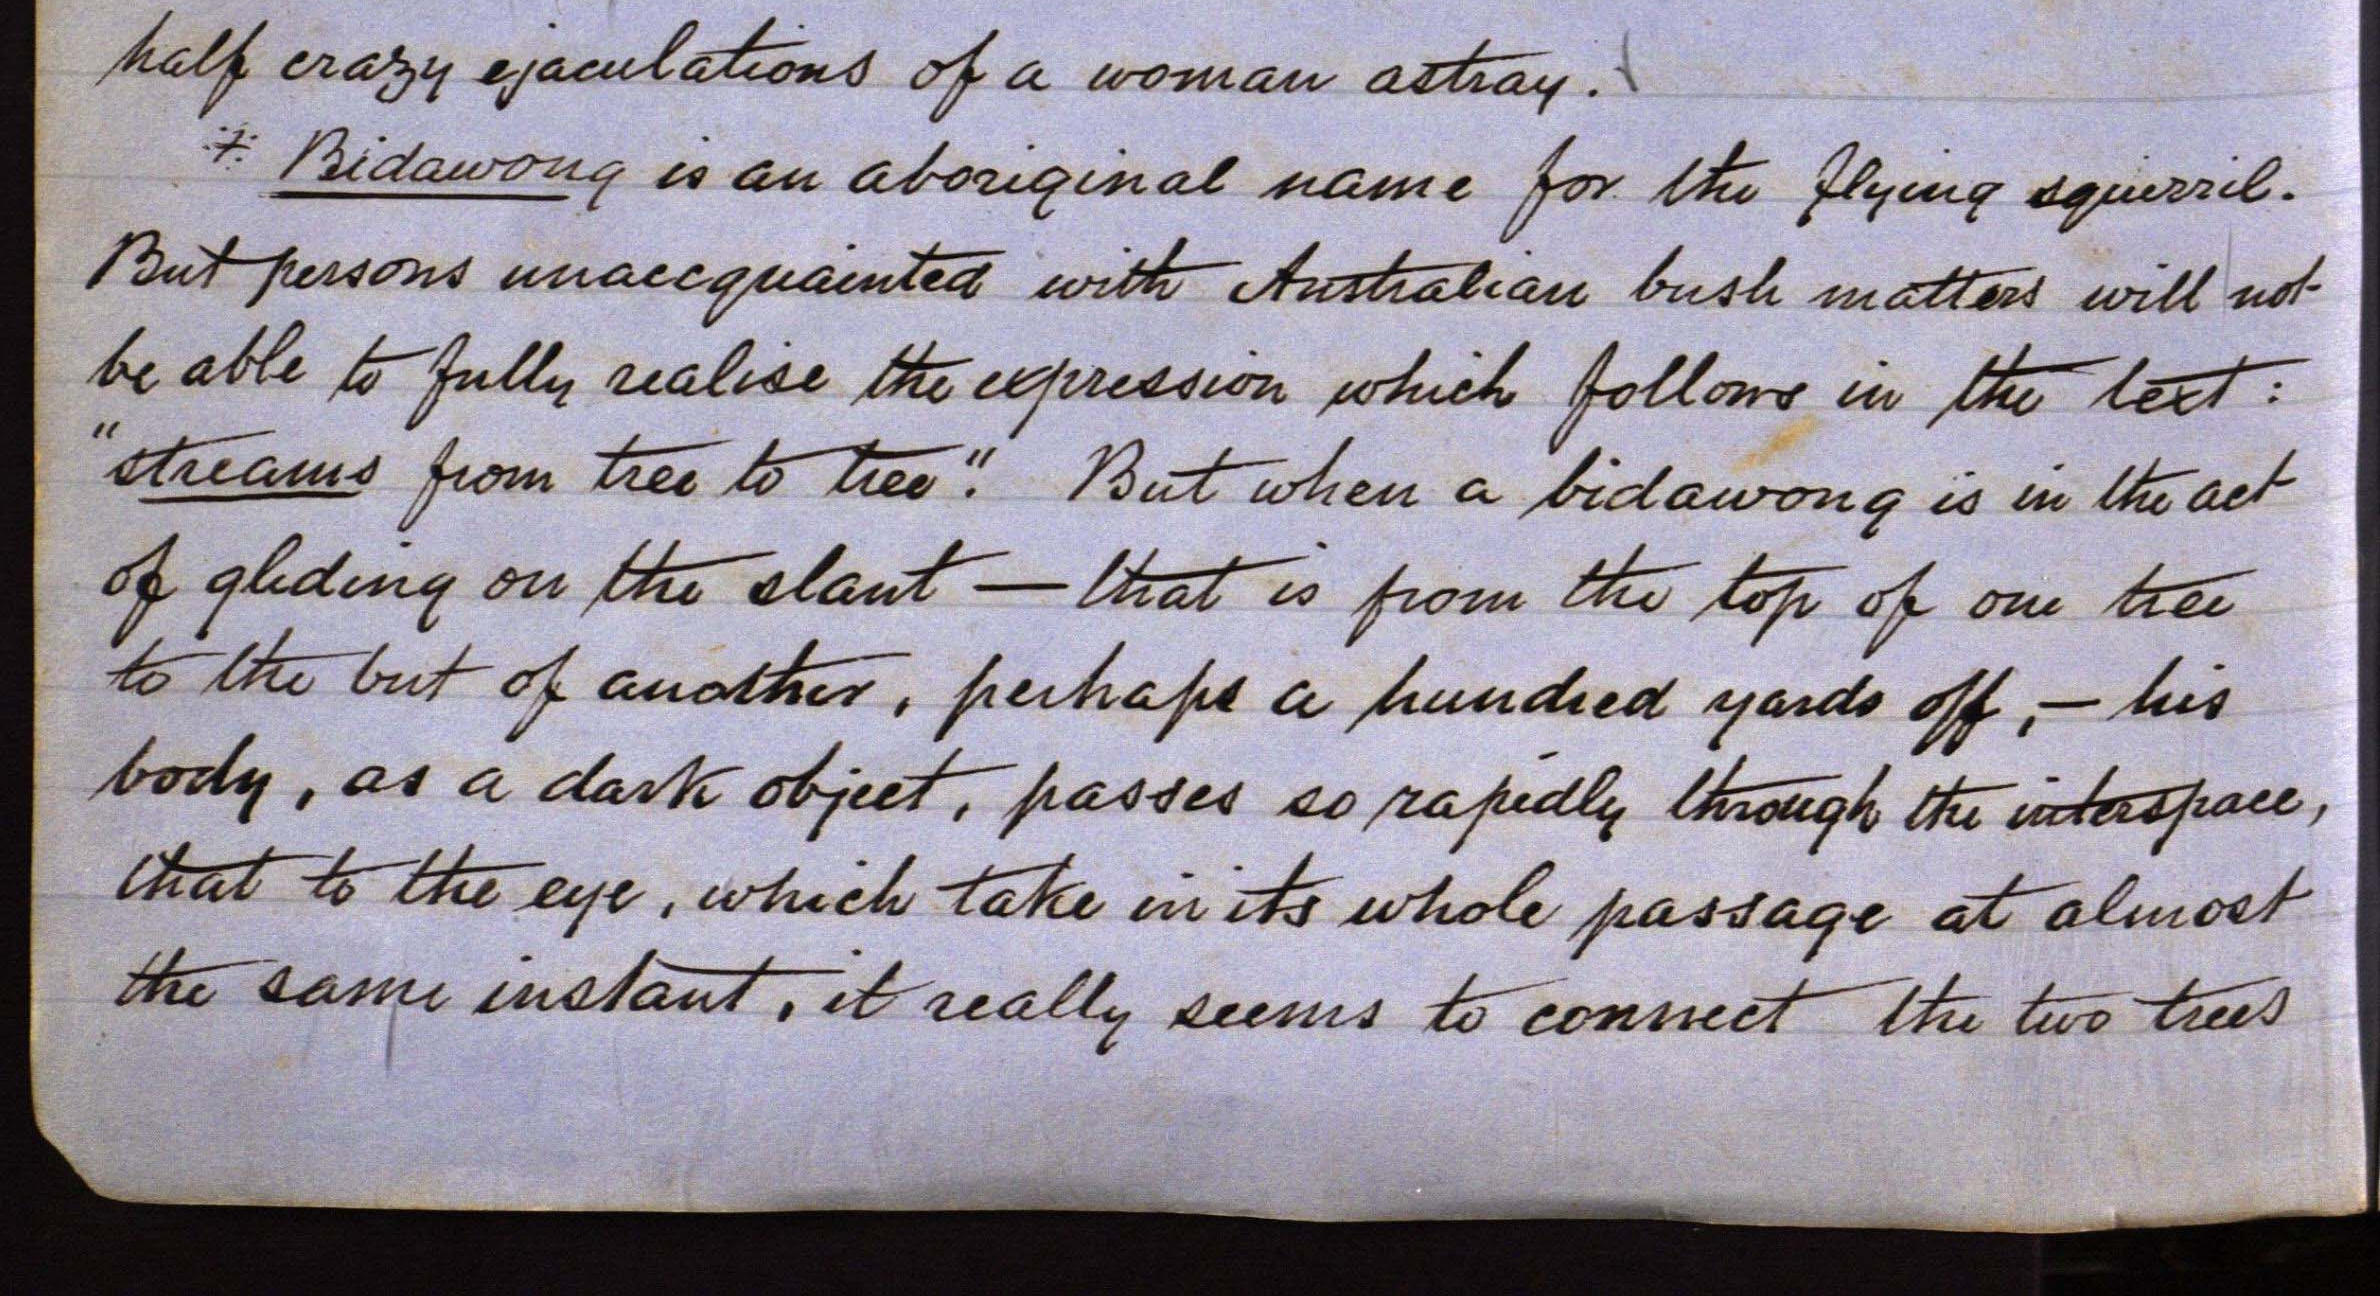 half crazy ejaculations of a woman astray.
* Bidawong is an aboriginal name for the flying squirril.
But persons unaccquainted with Australian bush matters will not
be able to fully realise the expression which follows in the text:
"streams from tree to tree". But when a bidawong is in the act
of gliding on the slant — that is from the top of one tree
to the but of another, perhaps a hundred yards off, — his
body, as a dark object, passes so rapidly through the interspace,
that to the eye, which take in its whole passage at almost
the same instant, it really seems to connect the two trees